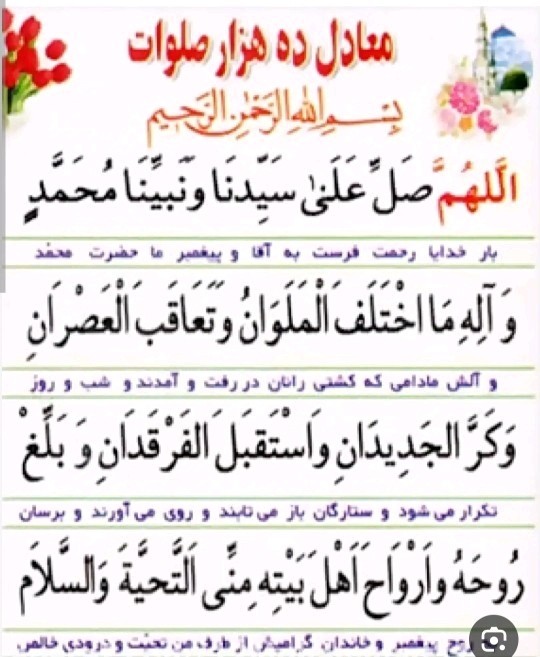 معادل ده هزار صلوات
بِسْمِ اللهِ الرَّحْمٰنِ الرَّحيمِ
اَللّٰهُمَّ صَلِّ عَلَىٰ سَيِّدِنَا وَنَبِيِّنَا مُحَمَّدٍ
بار خدایا رحمت فرست به آقا و پیغمبر ما حضرت محمد
وَ آلِهِ مَا اخْتَلَفَ الْمَلَوَانُ وَتَعَاقَبَ الْعَصْرَانِ
و آلش مادامی که کشتی رانان در رفت و آمدند و شب و روز
وَكَرَّ الجَدِيدَانِ وَاسْتَقبَلَ الفَرْقَدَانِ وَ بَلِّغْ
تکرار می شود و ستارگان باز می تابند و روی می آورند و برسان
رُوحَهُ وَاَرْوَاحَ اَهْلَ بَيْتِهِ مِنِّى اَلتَّحيَّةَ وَالسَّلاَم
روح پیغمبر و خاندان گرامیش از طرف من تحیّت و درودی خالص